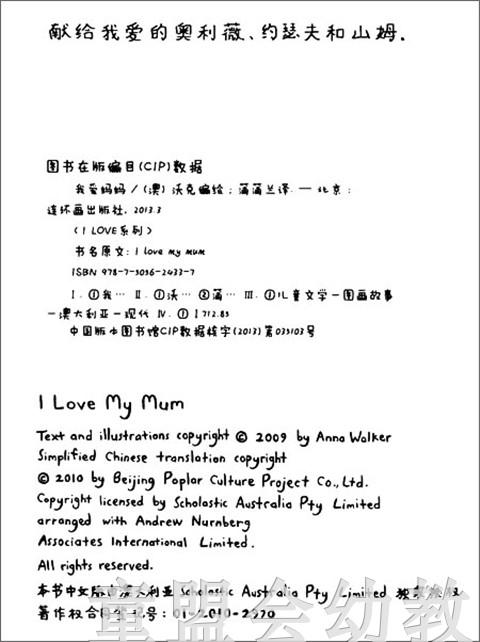 献给我爱的奥利薇、约瑟夫和山姆.
图书在版编目(CIP)数据
我爱妈妈/(澳)沃克编绘;蒲蒲兰译. — 北京:
连环画出版社, 2013.3
(I LOVE系列)
书名原文: I love my mum
ISBN 978-7-5056-2433-7
I. ①我… II. ①沃… ②蒲… III. ①儿童文学-图画故事
-澳大利亚-现代 IV. ① I712.85
中国版本图书馆CIP数据核字(2013)第035103号
I Love My Mum
Text and illustrations copyright © 2009 by Anna Walker
Simplified Chinese translation copyright
© 2010 by Beijing Poplar Culture Project Co., Ltd.
Copyright licensed by Scholastic Australia Pty Limited
arranged with Andrew Nurnberg
Associates International Limited.
All rights reserved.
本书中文版由澳大利亚Scholastic Australia Pty Limited 独家授权
著作权合同登记号: 01-2010-2970
童盟会幼教